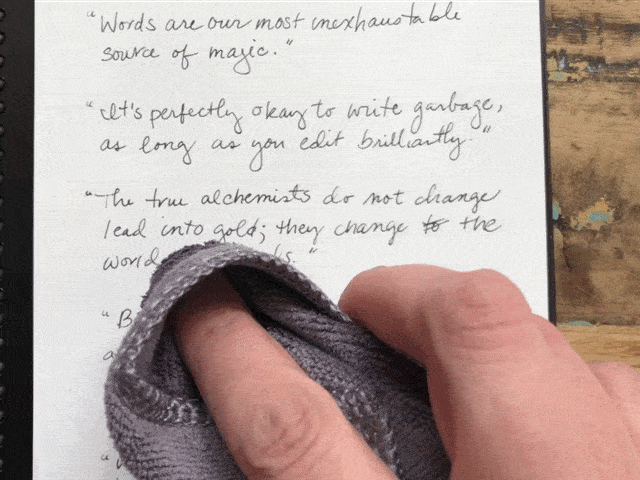 "Words are our most inexhaustable
source of magic."
"It's perfectly okay to write garbage,
as long as you edit brilliantly."
"The true alchemists do not change
lead into gold; they change to the
world
"B